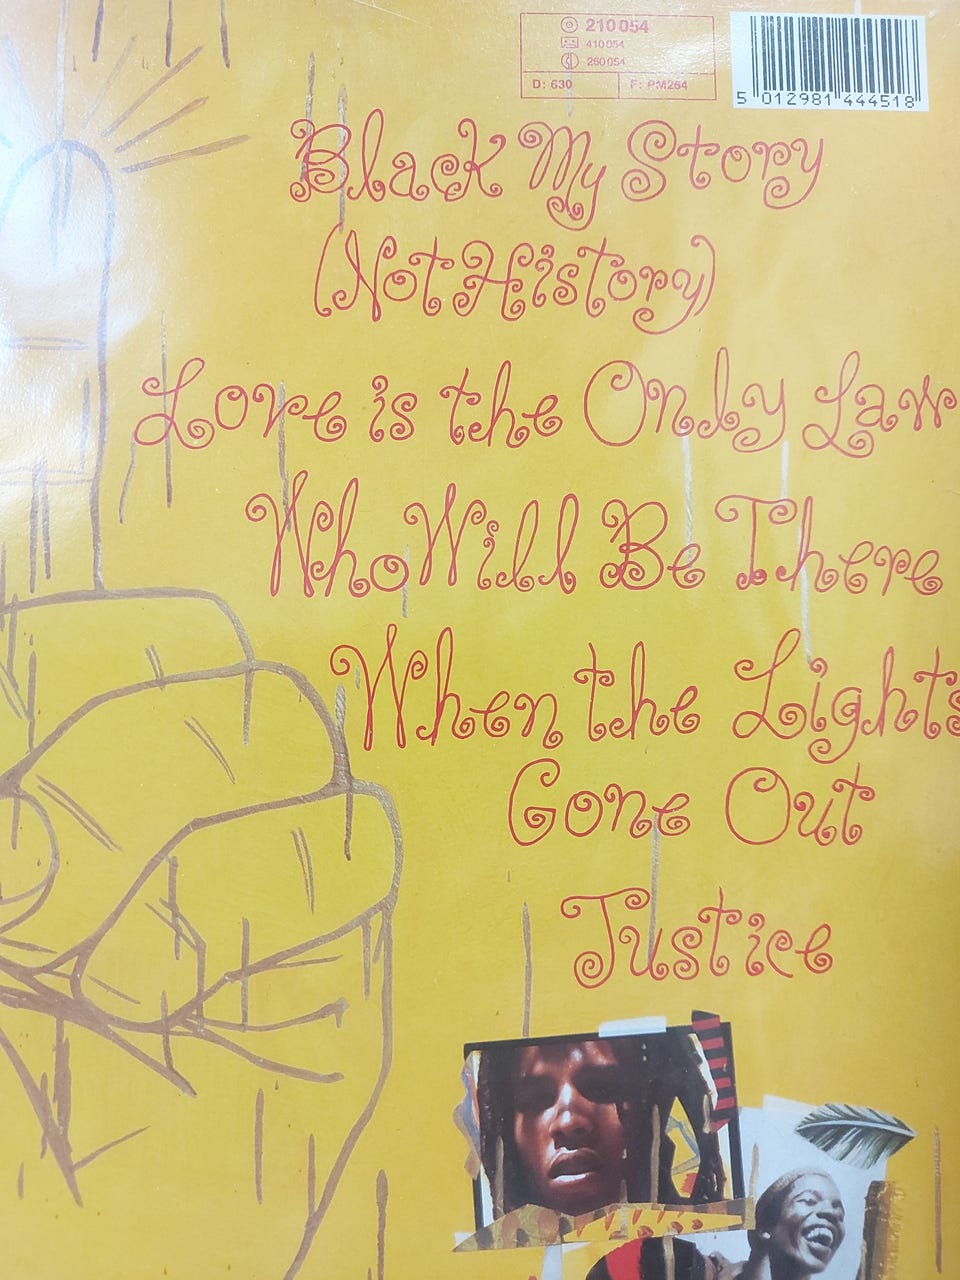 210 054
410 054
260 054
D: 630 F: PM264
5 012981 444518
Black My Story
(Not History)
Love is the Only Law
Who Will Be There
When the Lights
Gone Out
Justice